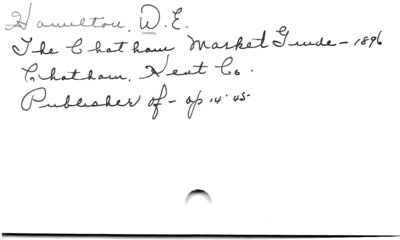 Hamilton, W. E.
The Chatham Market Guide - 1896
Chatham, Kent Co.
Publisher of - op 14.45-